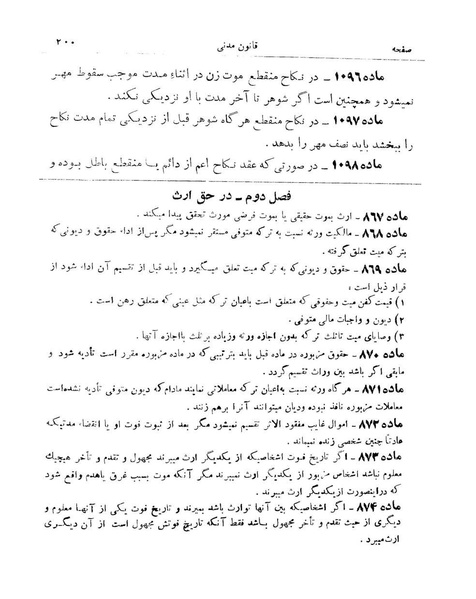 صفحه قانون مدنی ۲۰۰
ماده ۱۰۹۶ ـ در نکاح منقطع موت زن در اثناء مدت موجب سقوط مهر
نمیشود و همچنین است اگر شوهر تا آخر مدت با او نزدیکی نکند .
ماده ۱۰۹۷ ـ در نکاح منقطع هرگاه شوهر قبل از نزدیکی تمام مدت نکاح
را ببخشد باید نصف مهر را بدهد .
ماده ۱۰۹۸ ـ در صورتی که عقد نکاح اعم از دائم یا منقطع باطل بوده و
فصل دوم ـ در حق ارث
ماده ۸۶۷ ـ ارث بموت حقیقی یا بموت فرضی مورث تحقق پیدا میکند .
ماده ۸۶۸ ـ مالکیت ورثه نسبت به ترکه متوفی مستقر نمیشود مگر پس از اداء حقوق و دیونی که
بترکه میت تعلق گرفته .
ماده ۸۶۹ ـ حقوق و دیونی که به ترکه میت تعلق میگیرد و باید قبل از تقسیم آن اداء شود از
قرار ذیل است :
۱) قیمت کفن میت و حقوقی که متعلق است باعیان ترکه مثل عینی که متعلق رهن است .
۲) دیون و واجبات مالی متوفی .
۳) وصایای میت تا ثلث ترکه بدون اجازه ورثه و زیاده بر ثلث با اجازه آنها .
ماده ۸۷۰ ـ حقوق مزبوره در ماده قبل باید بترتیبی که در ماده مزبوره مقرر است تأدیه شود و
مابقی اگر باشد بین وراث تقسیم گردد .
ماده ۸۷۱ ـ هرگاه ورثه نسبت به اعیان ترکه معاملاتی نمایند مادام که دیون متوفی تأدیه نشده است
معاملات مزبوره نافذ نبوده و دیان میتوانند آنرا برهم زنند .
ماده ۸۷۲ ـ اموال غایب مفقود الاثر تقسیم نمیشود مگر بعد از ثبوت فوت او یا انقضاء مدتیکه
عادتا چنین شخصی زنده نمیماند .
ماده ۸۷۳ ـ اگر تاریخ فوت اشخاصیکه از یکدیگر ارث میبرند مجهول و تقدم و تأخر هیچیک
معلوم نباشد اشخاص مزبور از یکدیگر ارث نمیبرند مگر آنکه موت بسبب غرق یا هدم واقع شود
که در اینصورت از یکدیگر ارث میبرند .
ماده ۸۷۴ ـ اگر اشخاصیکه بین آنها توارث باشد بمیرند و تاریخ فوت یکی از آنها معلوم و
دیگری از حیث تقدم و تأخر مجهول باشد فقط آنکه تاریخ فوتش مجهول است از آن دیگری
ارث میبرد .